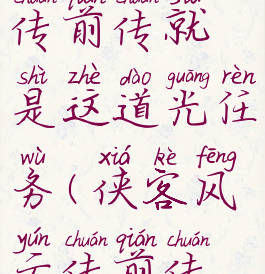 chuán qián chuán jiù
传前传就
shì zhè dào guāng rèn
是这道光任
wù xiá kè fēng
务（侠客风
yún chuán qián chuán
云传前传